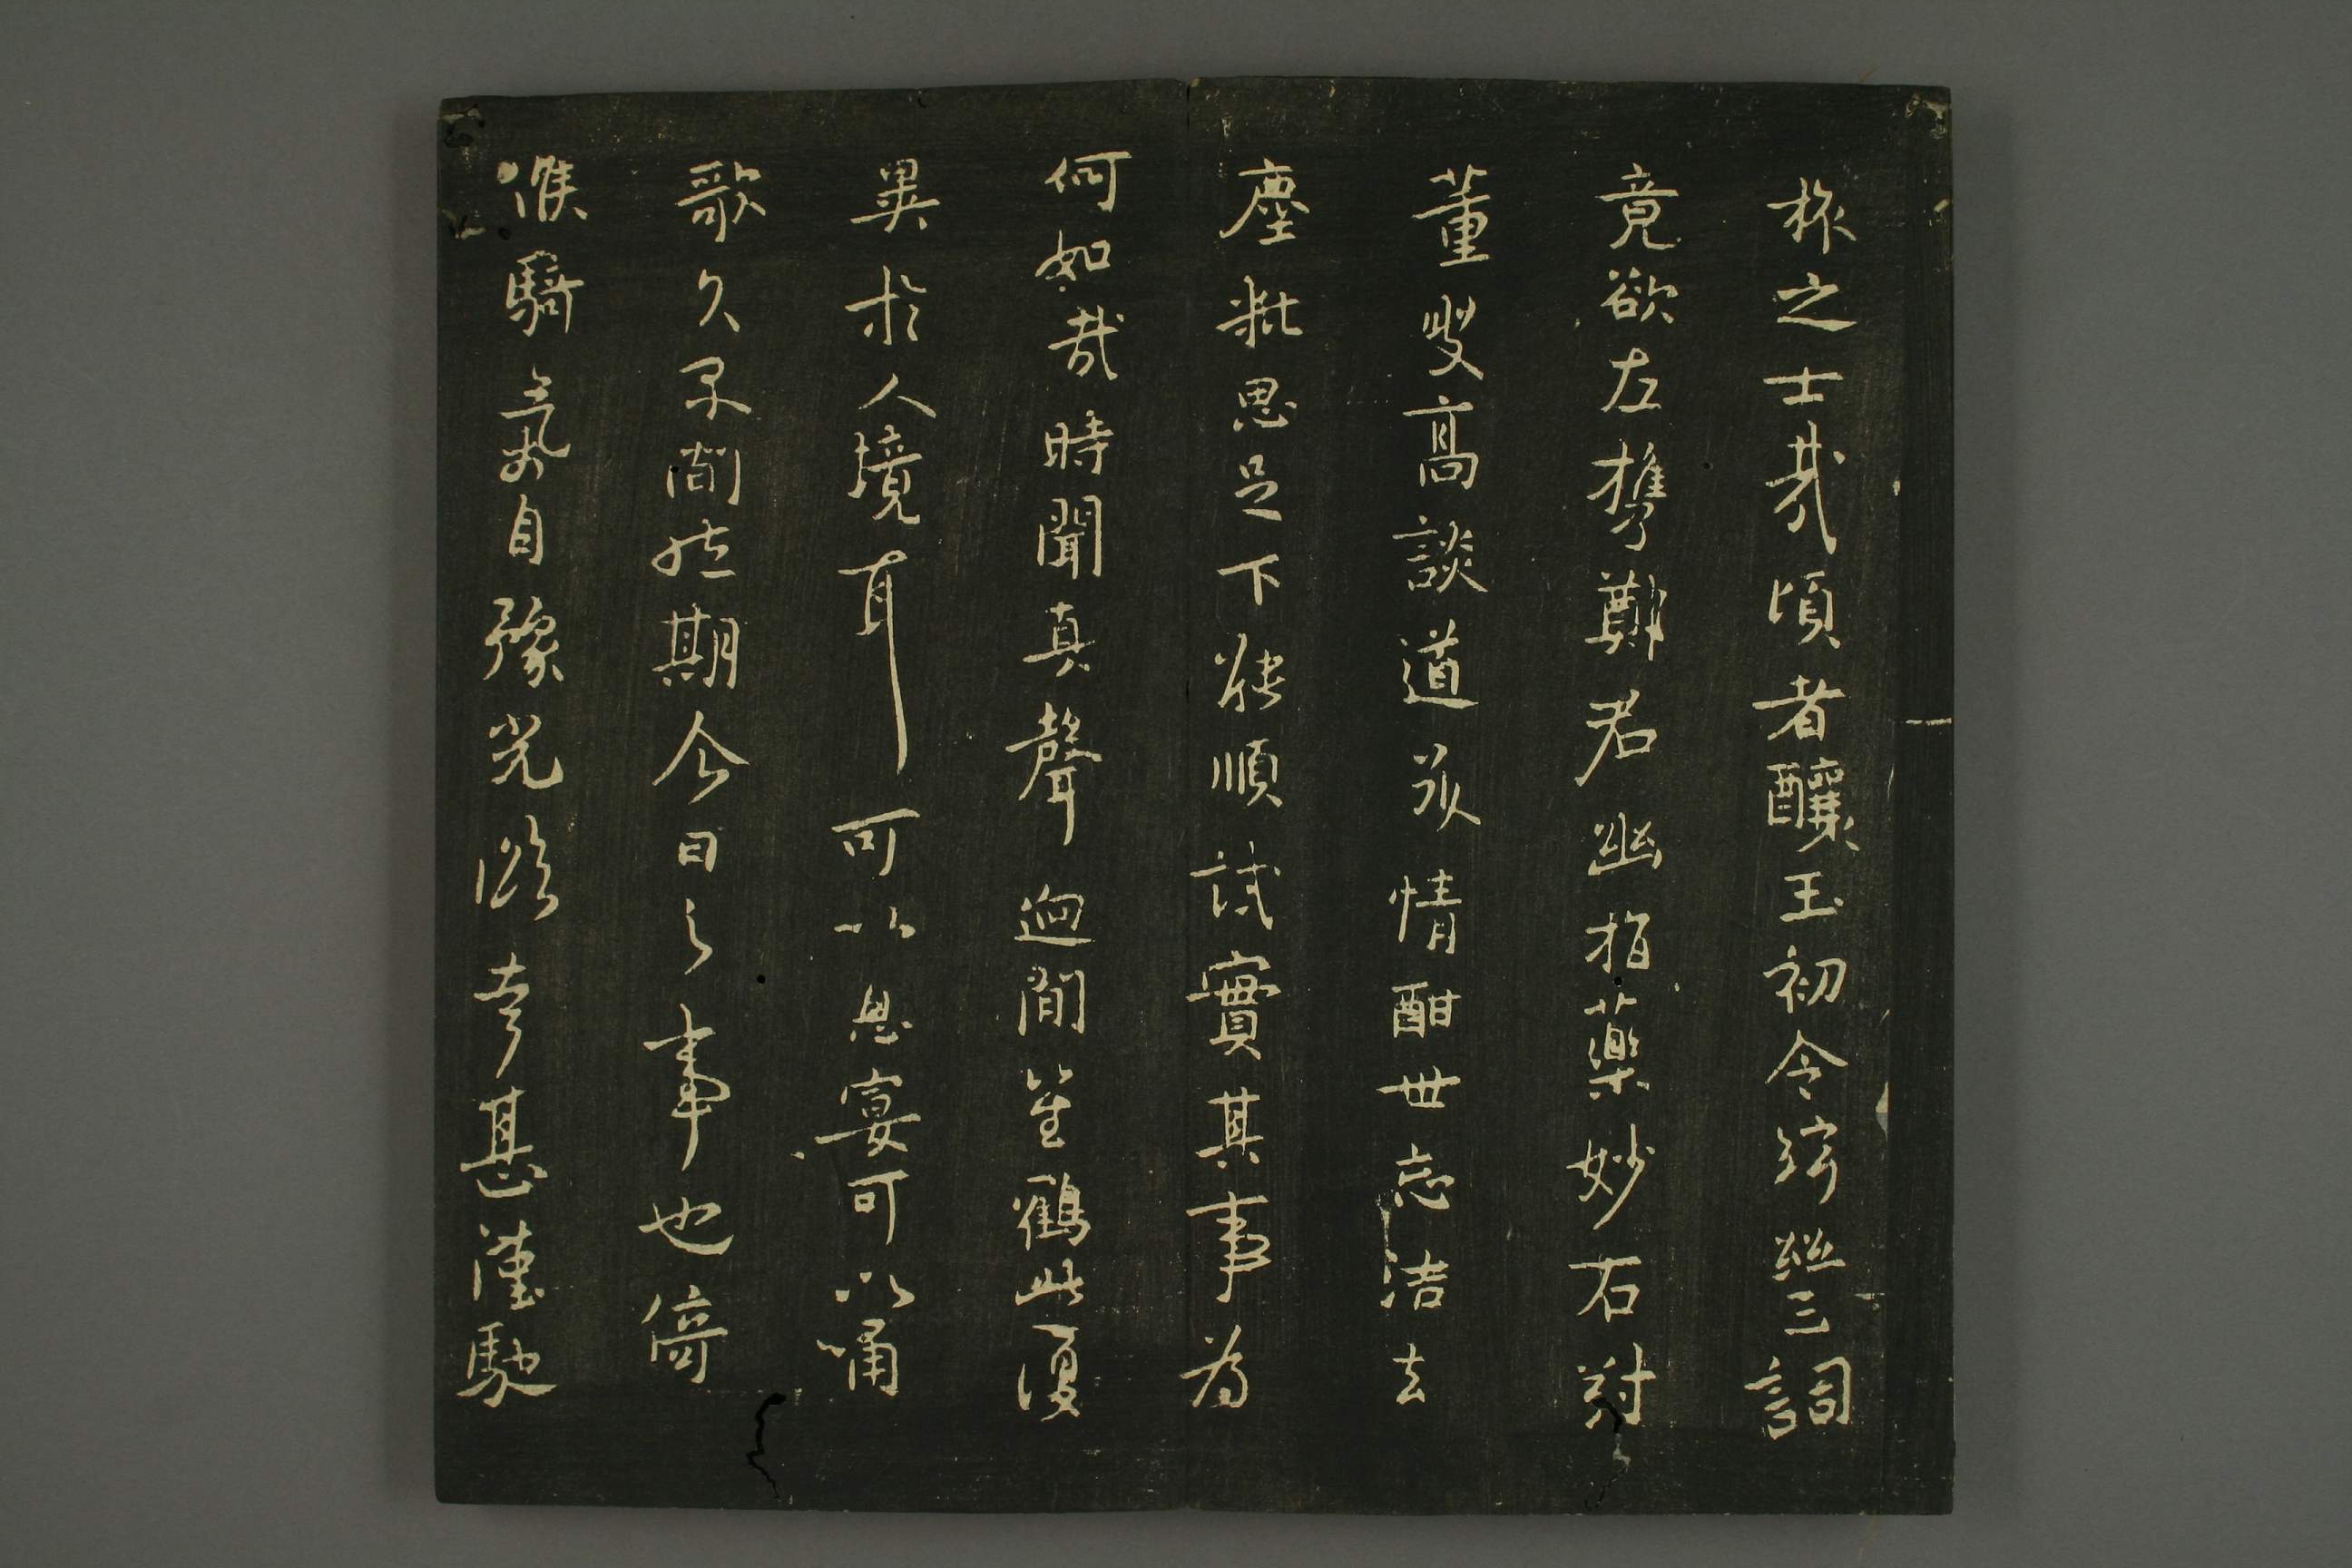 旅之士哉頃者釀玉初令絲三詞
竟欲左攜鄭君幽指藥妙右對
董叟高談道永情酣世忘洁去
塵粃思足下能順試實其事為
何如哉時聞真聲迥間笙鶴此復
異於人境耳可以息宴可以嘯
歌久不間然期今日之事也倚
候騎氣自豫光臨幸甚謹馳